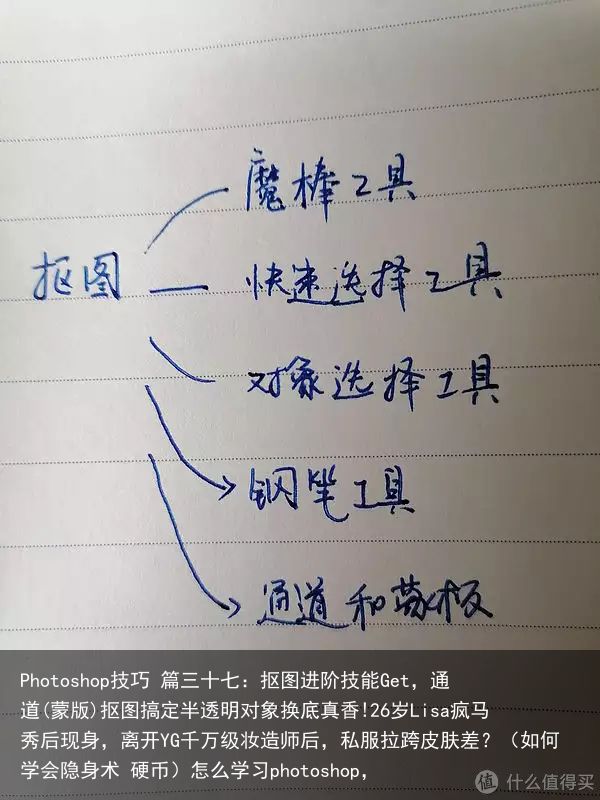 魔棒工具
抠图
快速选择工具
对象选择工具
钢笔工具
通道和蒙板
Photoshop技巧 篇三十七：抠图进阶技能Get，通
道(蒙版)抠图搞定半透明对象换底真香!26岁Lisa疯马
秀后现身，离开YG千万级妆造师后，私服拉跨皮肤差？（如何
学会隐身术 硬币）怎么学习photoshop，
值 什么值得买